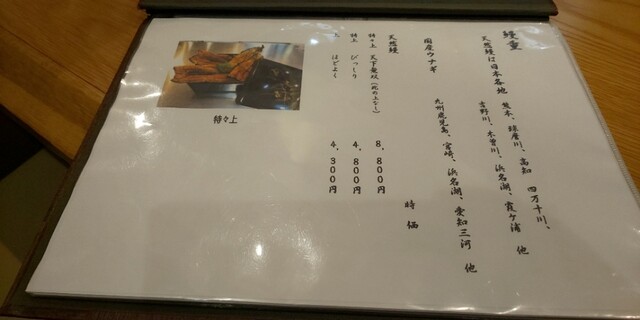 鰻重
天然鰻は日本各地 熊本、球磨川、高知 四万十川、
吉野川、木曽川、浜名湖、霞ヶ浦 他
国産ウナギ 九州鹿児島、宮崎、浜名湖、愛知三河 他
天然鰻 時価
特々上 天下無双(此の上なし) 8,800円
特上 びっしり 4,800円
上 ほどよく 4,300円
特々上